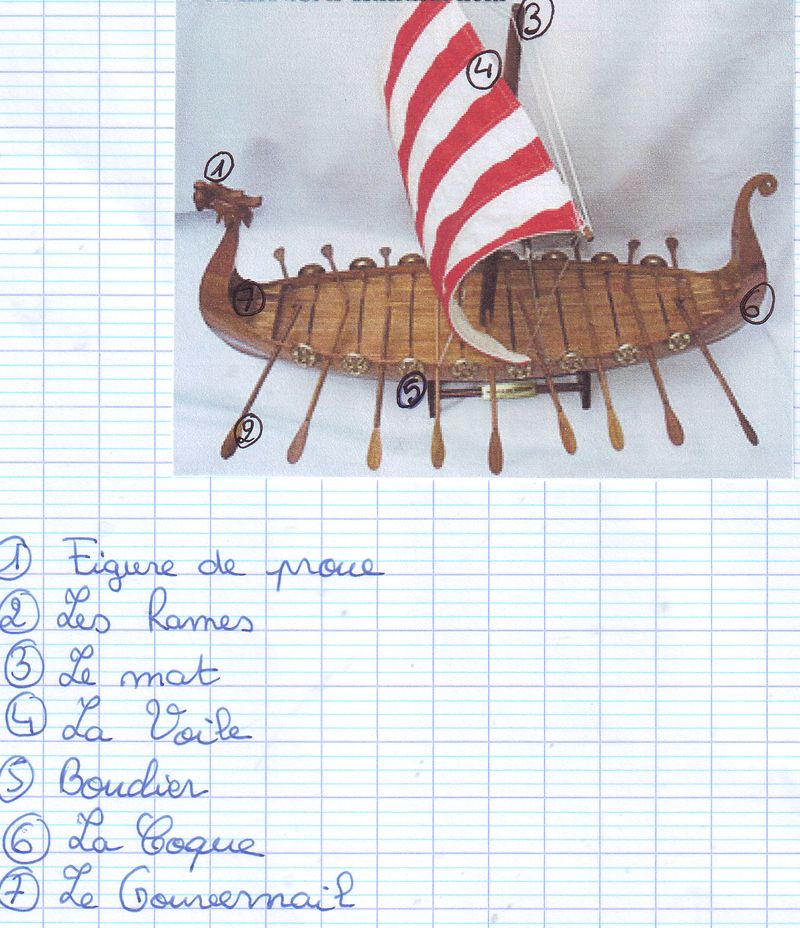 3
4
1
7
6
5
2
1 Figure de proue
2 Les Rames
3 Le mat
4 La Voile
5 Bouclier
6 La Coque
7 Le Gouvernail